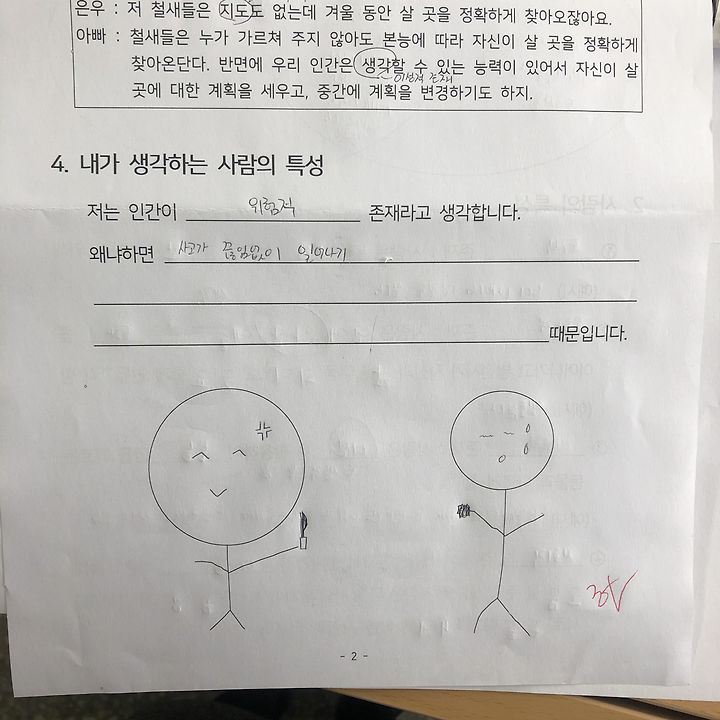 은우 : 저 철새들은 지도도 없는데 겨울 동안 살 곳을 정확하게 찾아오잖아요.
아빠 : 철새들은 누가 가르쳐 주지 않아도 본능에 따라 자신이 살 곳을 정확하게
찾아온단다. 반면에 우리 인간은 생각할 수 있는 능력이 있어서 자신이 살
이성적 존재
곳에 대한 계획을 세우고, 중간에 계획을 변경하기도 하지.
4. 내가 생각하는 사람의 특성
저는 인간이 위험적 존재라고 생각합니다.
왜냐하면 사고가 끊임없이 일어나기
때문입니다.
- 2 -